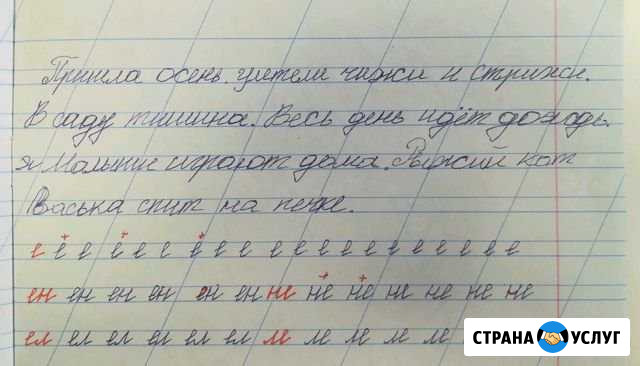 Пришла осень. улетели чижи и стрижи.
В саду тишина. Весь день идёт дождь.
Малыши играют дома. Рыжий кот
Васька спит на печке.
е е е е е е е е е е е е е е е е е е е е
ен ен ен ен ен ен не не не не не не не
ел ел ел ел ел ел ле ле ле ле ле
СТРАНА УСЛУГ